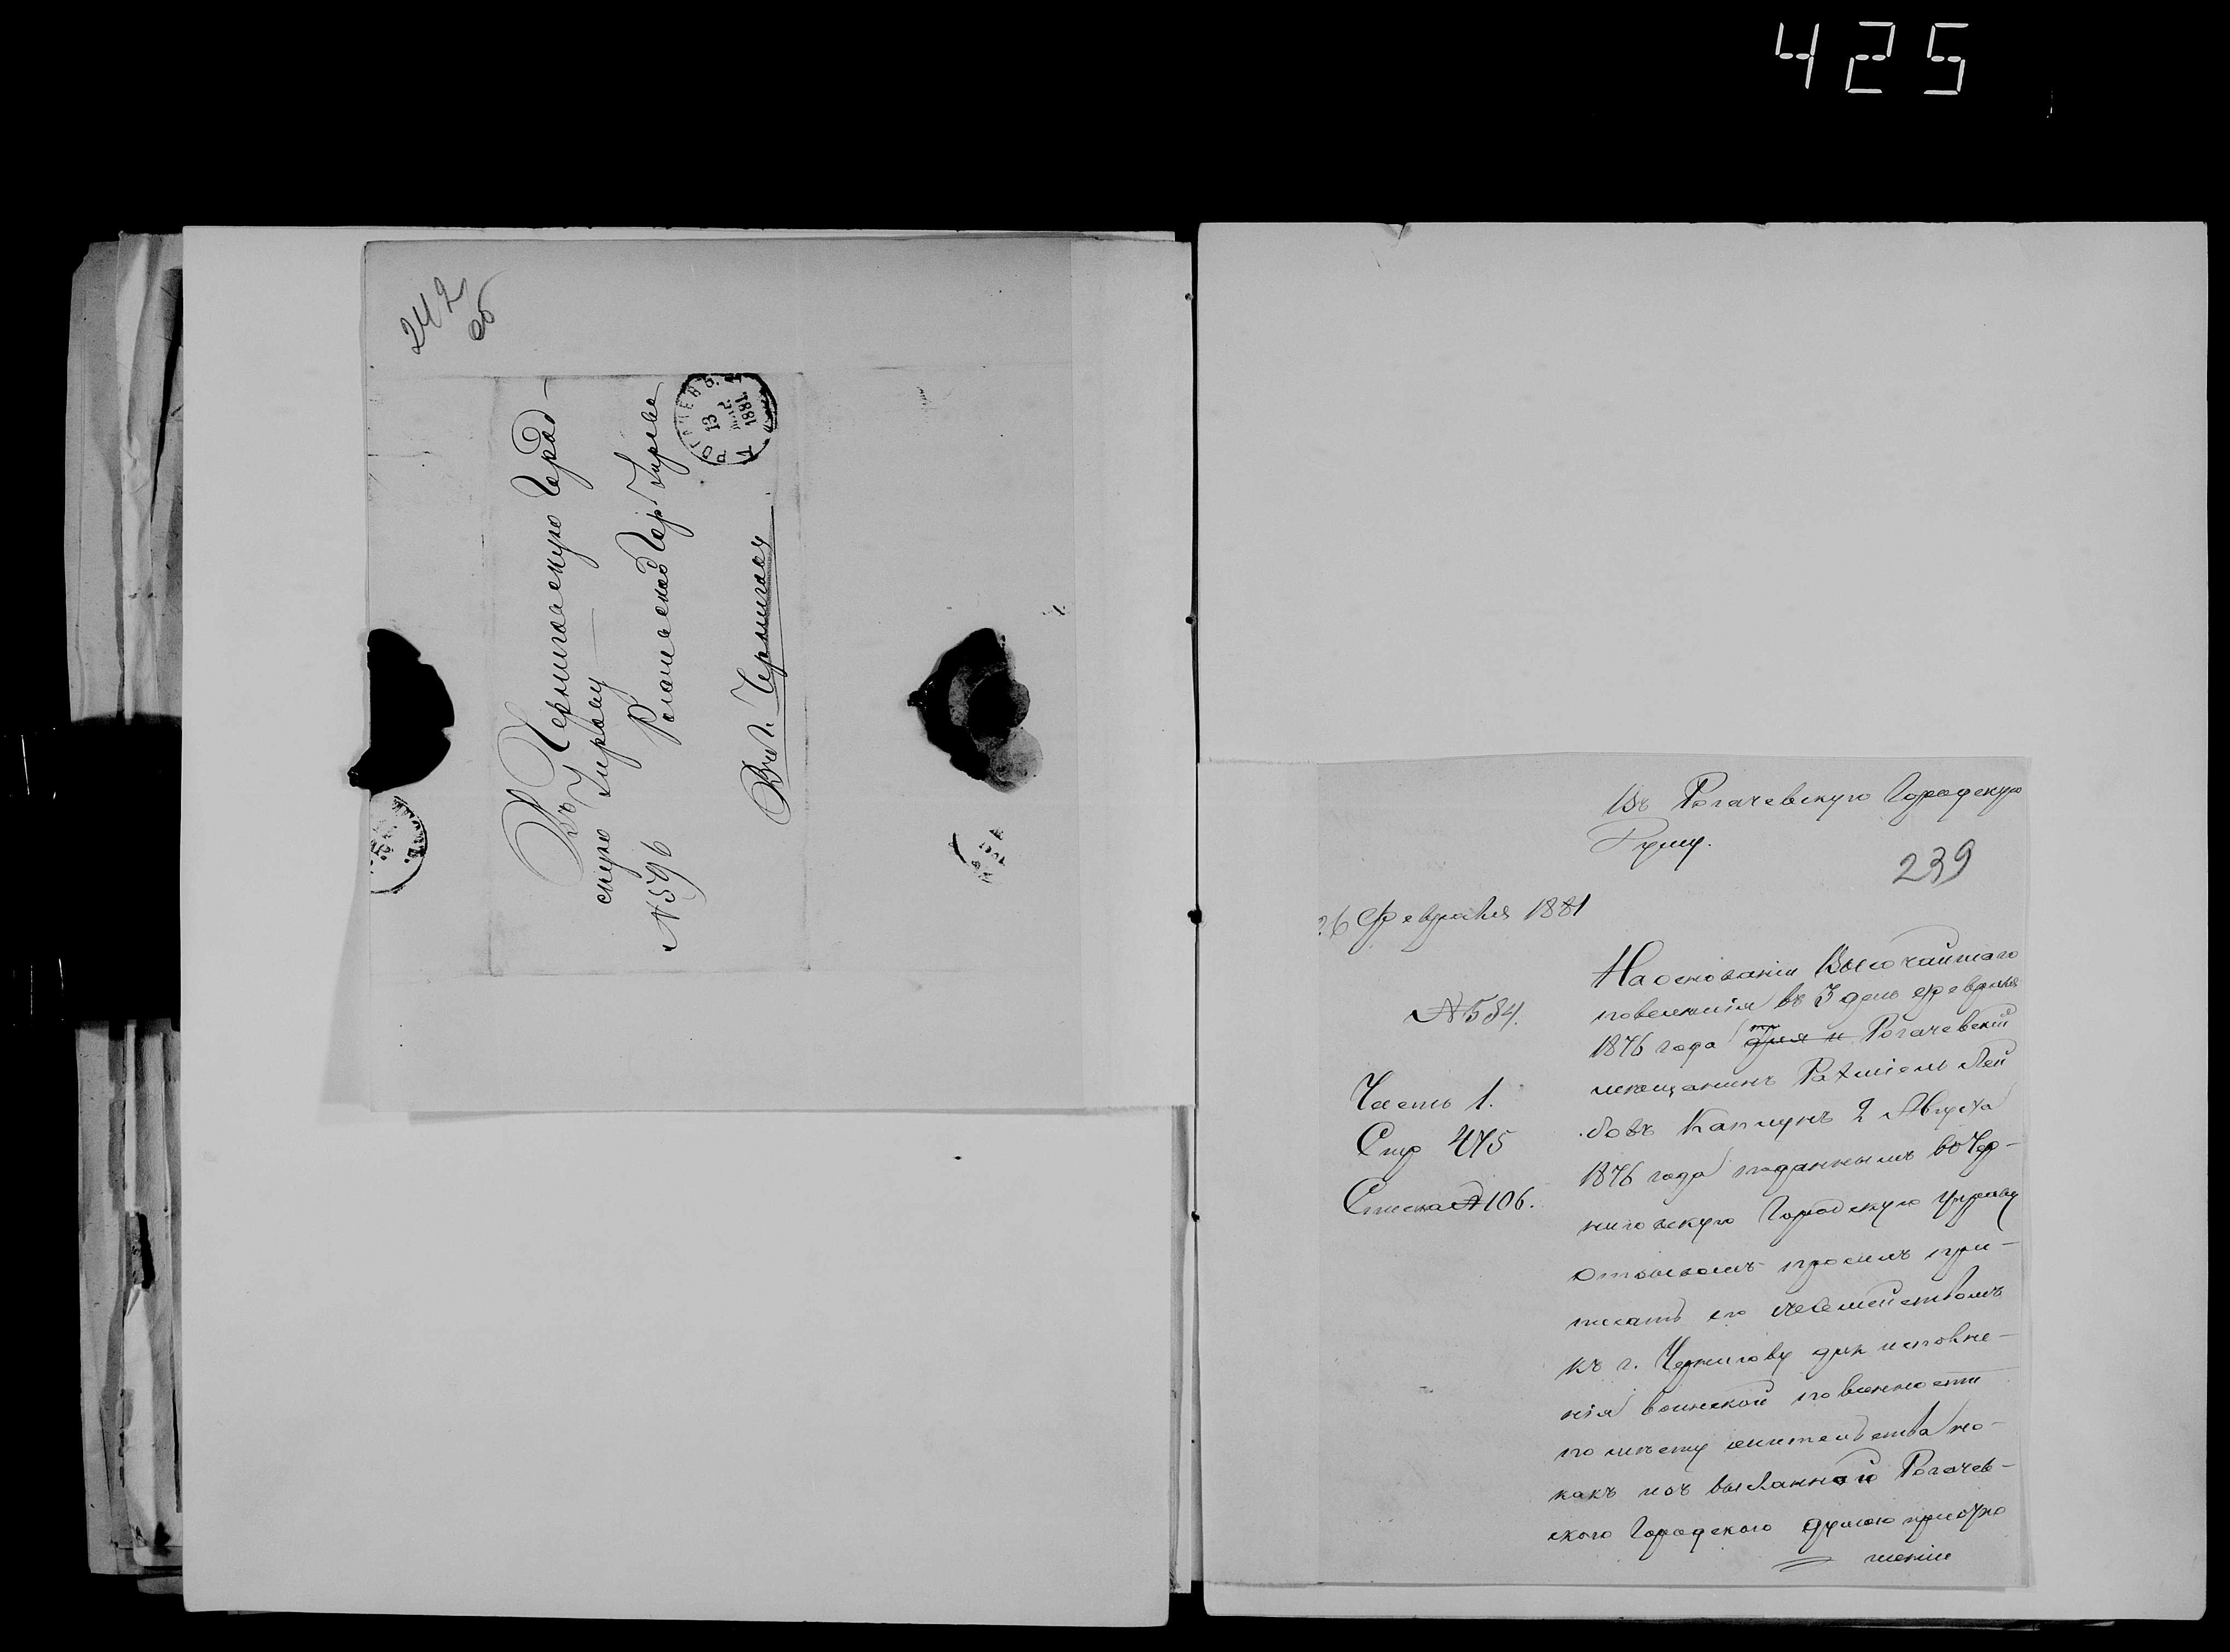 425
242
об
Въ Черниговскую Город-
скую Управу
№ 596 Рогачевской Гор. Управы
Въ г. Черниговъ
РОГАЧЕВЪ
13
1881
Въ Рогачевскую Городскую
Думу.
239
26 Февраля 1881
№ 584.
Часть 1.
Стр 475
Списка № 106.
На основаніи Высочайшаго
повеленія въ 3 день февраля
1876 года Рогачевскій
мещанинъ Рахміель Лей
бовъ Капчунъ 2 Августа
1876 года поданнымъ во Чер-
ниговскую Городскую Управу
отзывомъ просилъ при-
писать его съ семействомъ
къ г. Чернигову для исполне-
нія воинской повинности
по месту жительства но-
какъ изъ высланной Рогачев-
ского Городского Думою при отно
шеніи